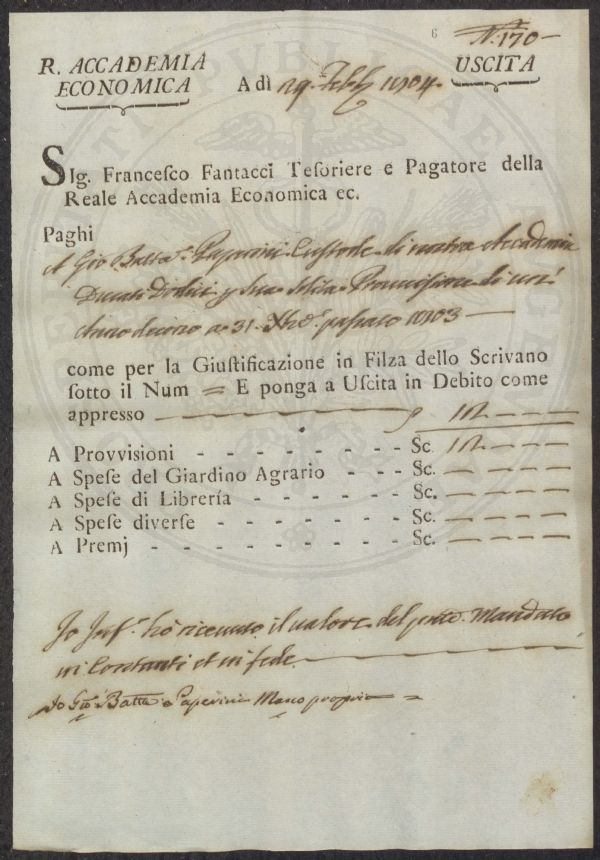 6
N. 170
R. ACCADEMIA
ECONOMICA
USCITA
A dì 29. Febb. 1804.
SIg. Franceſco Fantacci Teſoriere e Pagatore della
Reale Accademia Economica ec.
Paghi
A Gio Batta. Paperini Custode di nostra Accademia
Ducati Dodici p. sua solita Provvisione di
Anno decorso a 31. Xbre. passato 1803
come per la Giuſtificazione in Filza dello Scrivano
ſotto il Num = E ponga a Uſcita in Debito come
appreſſo 12
A Provviſioni - - - - - - - - Sc. 12
A Speſe del Giardino Agrario - - - Sc.
A Speſe di Librería - - - - - - Sc.
A Speſe diverſe - - - - - - - Sc.
A Premj - - - - - - - - - Sc.
Io Inf. hò ricevuto il valore del pnte. Mandato
in Contanti et in fede
Io Gio Batta Paperini Mano propria